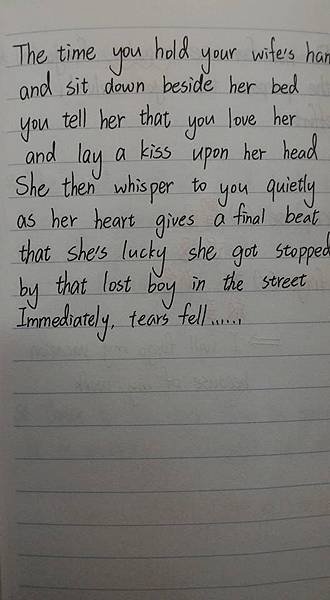 The time you hold your wife's han
and sit down beside her bed
you tell her that you love her
and lay a kiss upon her head
She then whisper to you quietly
as her heart gives a final beat
that she's lucky she got stopped
by that lost boy in the street
Immediately, tears fell......